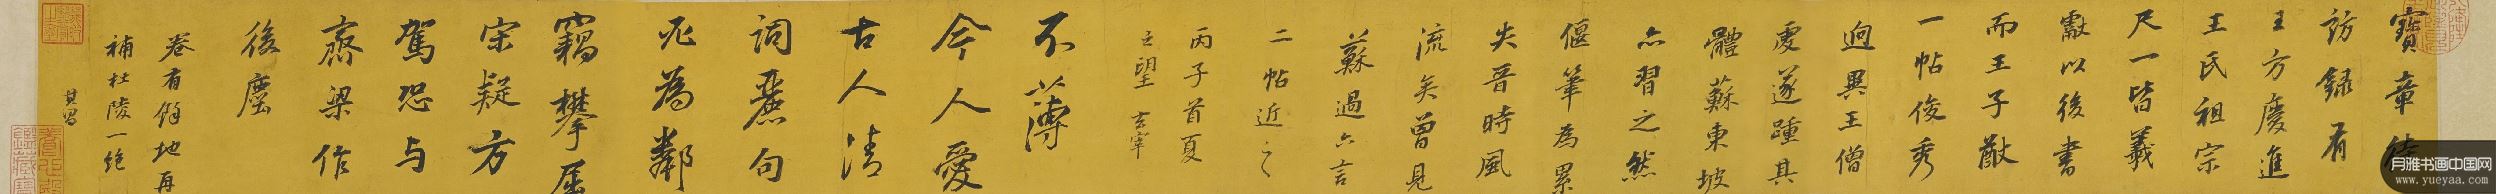 寶章待
訪錄有
王方慶進
王氏祖宗
尺一皆羲
獻以後書
而王子猷
一帖俊秀
迥異王僧
虔遂踵其
體蘇東坡
亦習之然
偃筆為累
失晉時風
流矣曾見
蘇過亦言
二帖近之
丙子首夏
玄宰
不薄
今人愛
古人清
詞麗句
必為鄰
竊攀屈
宋疑方
駕恐與
齊梁作
後塵
卷有餘地再
補杜陵一絕
其昌
月雅书画中国网
www.yueyaa.com